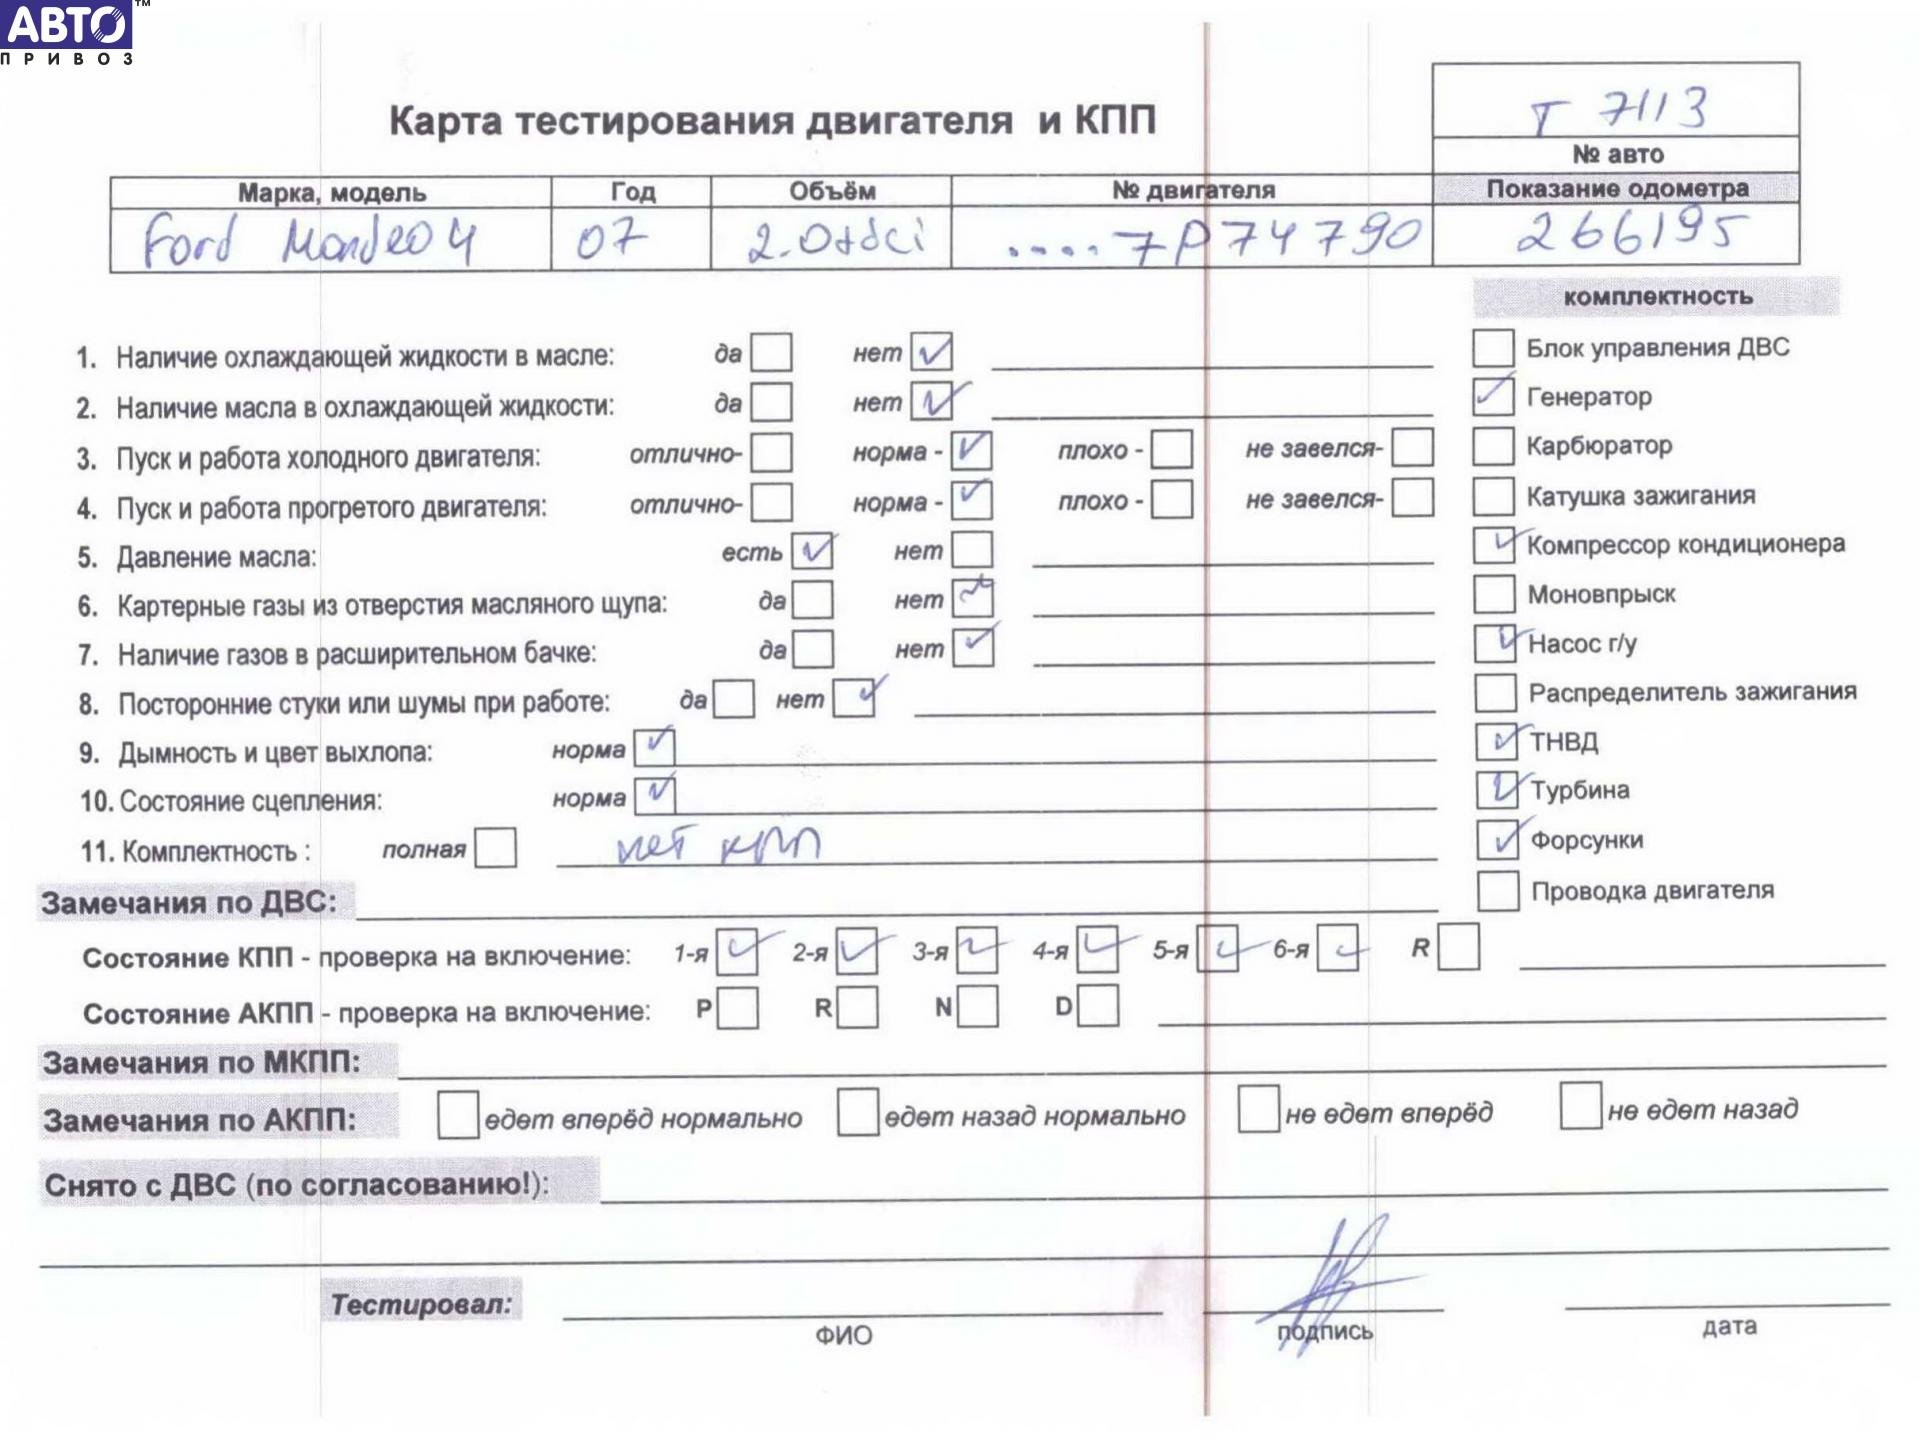 АВТО™
ПРИВОЗ
Карта тестирования двигателя и КПП
Т 7113
№ авто
Марка, модель Год Объём № двигателя Показание одометра
Ford Mondeo 4 07 2.0tdci ....7P74790 266195
комплектность
1. Наличие охлаждающей жидкости в масле: да нет ✓
Блок управления ДВС
2. Наличие масла в охлаждающей жидкости: да нет ✓
✓ Генератор
3. Пуск и работа холодного двигателя: отлично- норма - ✓ плохо - не завелся-
Карбюратор
4. Пуск и работа прогретого двигателя: отлично- норма - ✓ плохо - не завелся-
Катушка зажигания
5. Давление масла: есть ✓ нет
✓ Компрессор кондиционера
6. Картерные газы из отверстия масляного щупа: да нет ✓
Моновпрыск
7. Наличие газов в расширительном бачке: да нет ✓
✓ Насос г/у
8. Посторонние стуки или шумы при работе: да нет ✓
Распределитель зажигания
9. Дымность и цвет выхлопа: норма ✓
✓ ТНВД
10. Состояние сцепления: норма ✓
✓ Турбина
11. Комплектность : полная нет кпп
✓ Форсунки
Замечания по ДВС:
Проводка двигателя
Состояние КПП - проверка на включение: 1-я ✓ 2-я ✓ 3-я ✓ 4-я ✓ 5-я ✓ 6-я ✓ R
Состояние АКПП - проверка на включение: P R N D
Замечания по МКПП:
Замечания по АКПП: едет вперёд нормально едет назад нормально не едет вперёд не едет назад
Снято с ДВС (по согласованию!):
Тестировал:
ФИО подпись дата